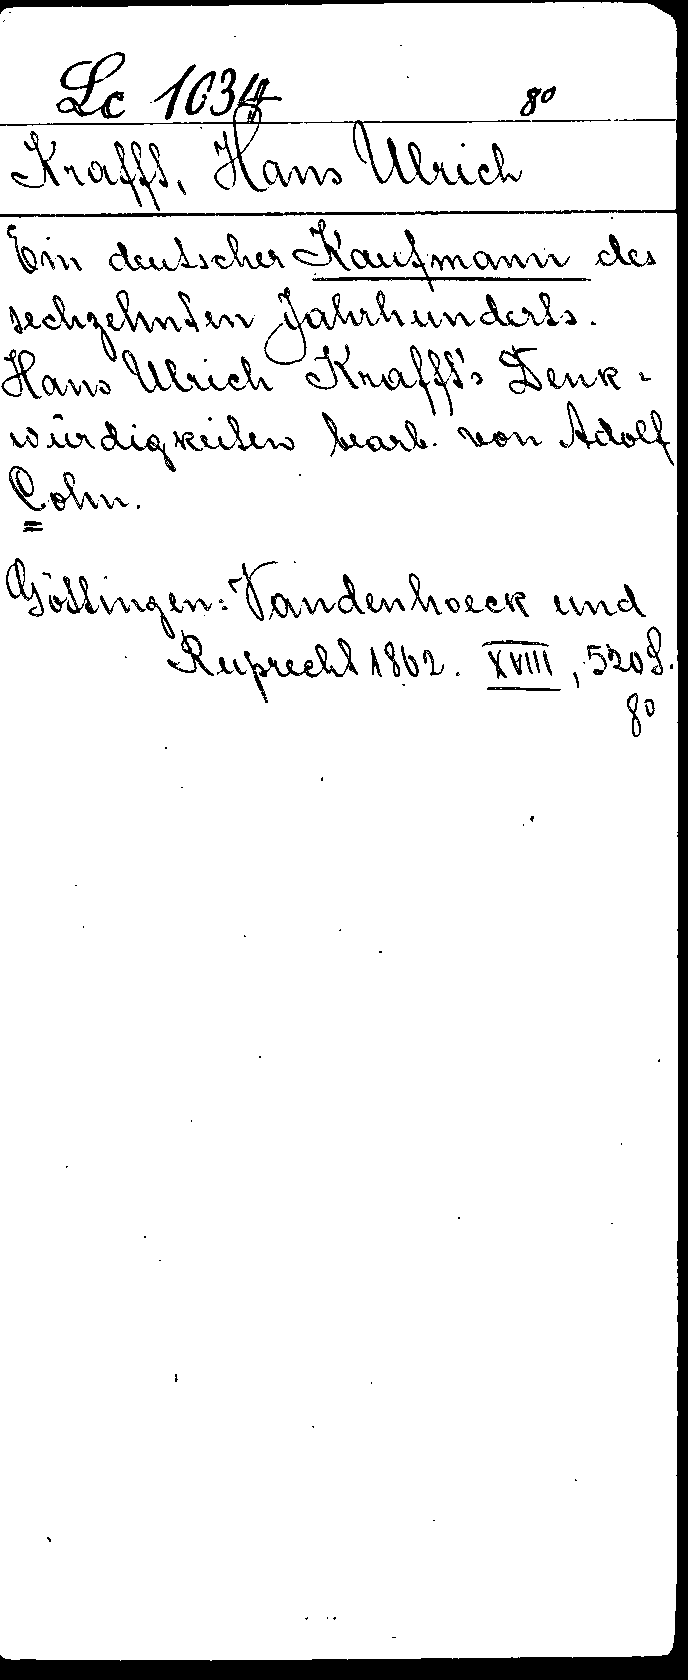 Lc 1034 8°
Krafft, Hans Ulrich
Ein deutscher Kaufmann des
sechzehnten Jahrhunderts.
Hans Ulrich Krafft's Denk=
würdigkeiten bearb. von Adolf
Cohn.
Göttingen: Vandenhoeck und
Ruprecht 1862. XVIII, 520 S.
8°